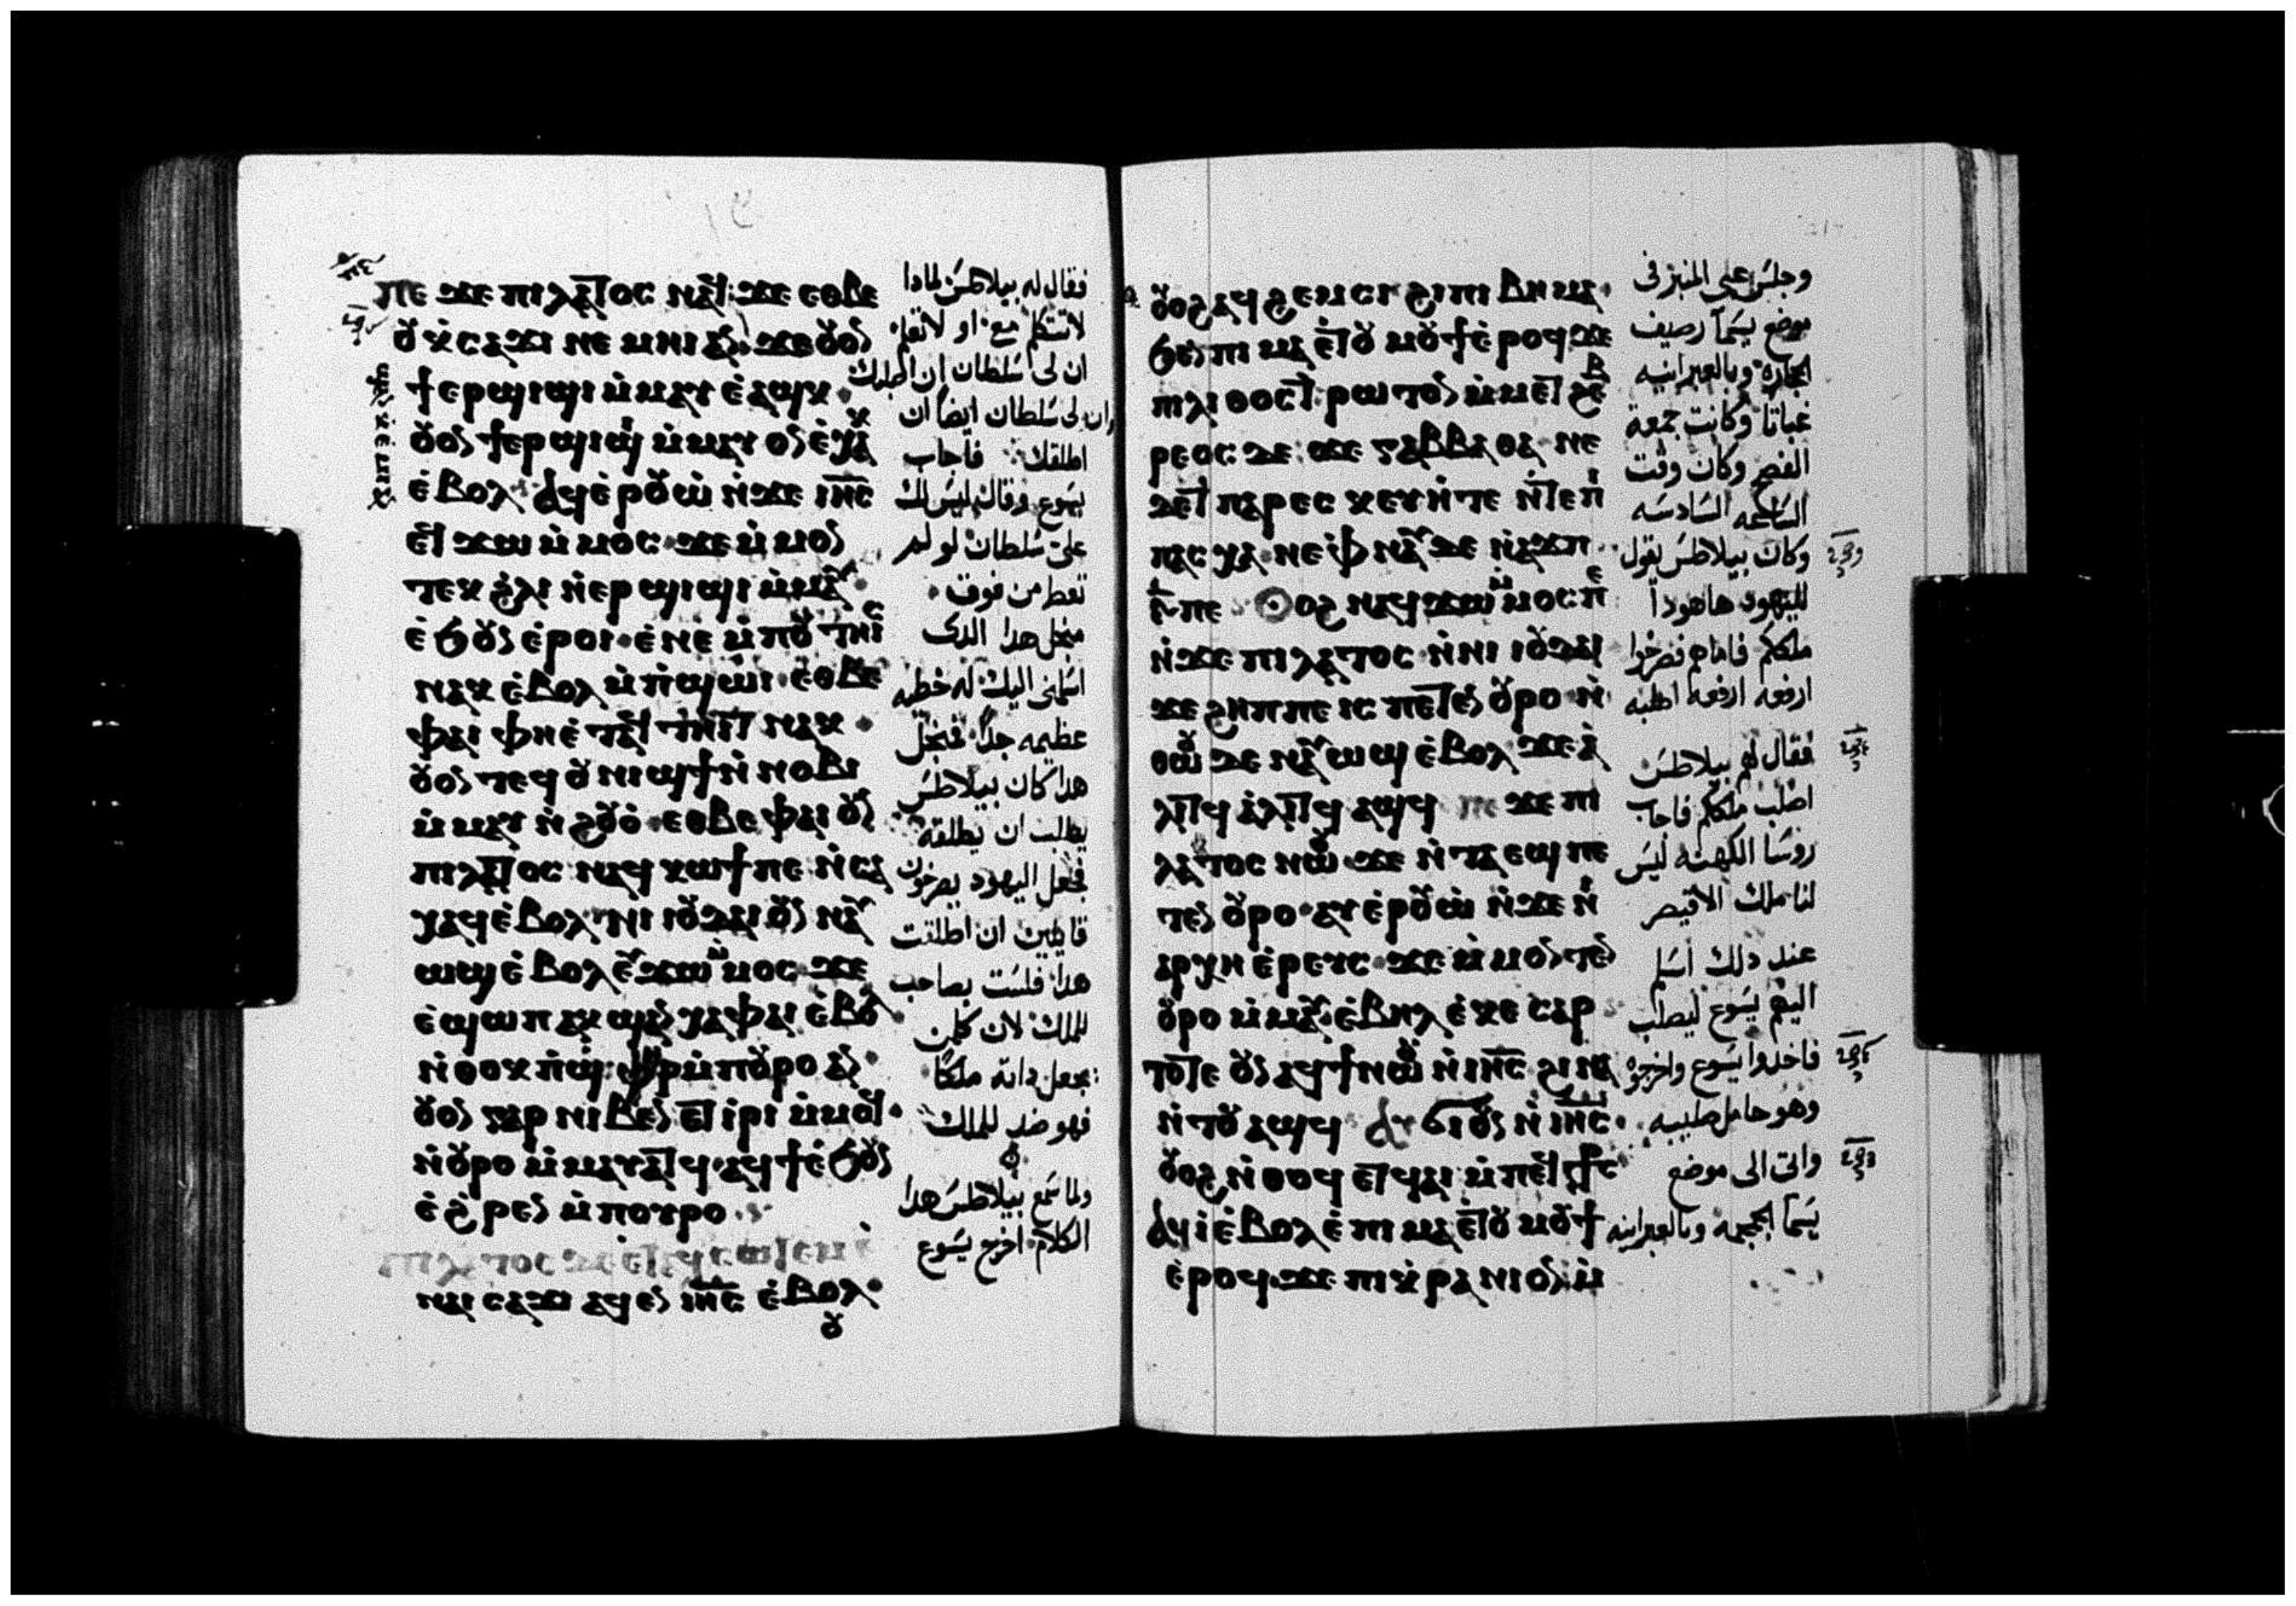 ⲡⲉ ϫⲉ ⲡⲓⲗⲁⲧⲟⲥ ⲛⲁϥ ϫⲉ ⲉⲑⲃⲉ
ⲟⲩ ⲕⲥⲁϫⲓ ⲛⲉⲙⲏⲓ ⲁⲛ ϫⲉ ⲟⲩⲟⲛ
ϯⲉⲣϣⲓϣⲓ ⲙ̀ⲙⲁⲩ ⲉ̀ⲁϣⲕ
ⲟⲩⲟϩ ϯⲉⲣϣⲓϣⲓ ⲙ̀ⲙⲁⲩ ⲟⲛ ⲉ̀ⲭⲁⲕ
ⲉ̀ⲃⲟⲗ ⲁϥⲉ̀ⲣⲟⲩⲱ̀ ⲛ̀ϫⲉ ⲓⲏ̅ⲥ̅
ⲉϥϫⲱ ⲙ̀ⲙⲟⲥ ϫⲉ ⲙ̀ⲙⲟⲛ
ⲧⲉⲕ ϩ̀ⲗⲓ ⲛ̀ⲉⲣϣⲓϣⲓ ⲙ̀ⲙⲁⲩ
ⲉ̀ϧⲟⲩⲛ ⲉ̀ⲣⲟⲓ ⲉ̀ⲛⲉ ⲙ̀ⲡⲟⲩⲧⲏⲓⲥ
ⲛⲁⲕ ⲉ̀ⲃⲟⲗ ⲙ̀ⲡ̀ϣⲱⲓ ⲉⲑⲃⲉ
ⲫⲁⲓ ⲫⲏ ⲉ̀ⲧⲁϥⲧⲏⲓⲧ ⲛⲁⲕ
ⲟⲩⲟⲛ ⲧⲉϥ ⲟⲩⲛⲓϣϯ ⲛ̀ⲛⲟⲃⲓ
ⲙ̀ⲙⲁⲩ ⲛ̀ϩⲟⲩⲟ̀ ⲉⲑⲃⲉ ⲫⲁⲓ ⲟⲩⲛ
ⲡⲓⲗⲁⲧⲟⲥ ⲛⲁϥⲕⲱϯ ⲡⲉ ⲛ̀ⲥⲁ
ⲭⲁϥ ⲉ̀ⲃⲟⲗ ⲛⲓ ⲓⲟⲩⲇⲁⲓ ⲟⲩⲛ ⲛⲁⲩ
ⲱϣ ⲉ̀ⲃⲟⲗ ⲉⲩϫⲱ ⲙ̀ⲙⲟⲥ ϫⲉ
ⲉ̀ϣⲱⲡ ⲁⲕϣⲁⲛⲭⲁ ⲫⲁⲓ ⲉ̀ⲃⲟⲗ
ⲛ̀ⲑⲟⲕ ⲡ̀ϣⲫⲏⲣ ⲙ̀ⲡⲟⲩⲣⲟ ⲁⲛ
ⲟⲩⲟⲛ ⲅⲁⲣ ⲛⲓⲃⲉⲛ ⲉⲧⲓ̀ⲣⲓ ⲙ̀ⲙⲟϥ
ⲛ̀ⲟⲩⲣⲟ ⲙ̀ⲙⲁⲩⲁⲧϥ ⲁϥϯ ⲉ̀ϧⲟⲩⲛ
ⲉ̀ϩ̀ⲣⲉⲛ ⲙ̀ⲡⲟⲩⲣⲟ
ⲡⲓⲗⲁⲧⲟⲥ ⲇⲉ ⲉⲧⲁϥⲥⲱⲧⲉⲙ ⲉ̀
ⲛⲁⲓ ⲥⲁϫⲓ ⲁϥⲉⲛ ⲓⲏ̅ⲥ̅ ⲉ̀ⲃⲟⲗ
ⲟⲩ
فقال له بيلاطس لمادا
لا تتكلم معي او لا تعلم
ان لى سلطان ان اصلبك
وان لى سلطان ايضا ان
اطلقك فاجاب
يسوع وقال ليس لك
على سلطان لو لم
تعط من فوق
من اجل هدا الدى
اسلمنى اليك له خطيه
عظيمه جدا فمن اجل
هدا كان بيلاطس
يطلب ان يطلقه
فجعل اليهود يصرخون
قايلين ان اطلقت
هدا فلست بصاحب
للملك لان كلمن
يجعل داته ملكا
فهو ضد للملك
ولما سمع بيلاطس هدا
الكلام اخرج يسوع
ⲟⲩⲟϩ ⲁϥϩⲉⲙⲥⲓ ϩⲓ ⲡⲓ ⲃⲏⲙⲁ
ϧⲉⲛ ⲡⲓ ⲙⲁ ⲉ̀ⲧⲟⲩⲙⲟⲩϯ ⲉ̀ⲣⲟϥ ϫⲉ
ⲡⲓⲗⲓⲑⲟⲥⲧⲣⲱⲧⲟⲛ ⲙ̀ⲙⲉⲧϩⲉⲃ
ⲣⲉⲟⲥ ⲇⲉ ϫⲉ ⲅⲁⲃⲃⲁⲑⲁ ⲛⲉ
ϫⲉ ⲡⲁⲣⲁⲥⲕⲉⲩⲏ̀ ⲧⲉ ⲛ̀ⲧⲉ ⲡⲓ
ⲡⲁⲥⲭⲁ ⲛⲉ ⲫ̀ⲛⲁⲩ ⲇⲉ ⲛ̀ⲁϫⲡ
ⲋ̅ ⲡⲉ ⲟⲩⲟϩ ⲛⲁϥϫⲱ ⲙ̀ⲙⲟⲥ ⲡⲉ
ⲛ̀ϫⲉ ⲡⲓⲗⲁⲧⲟⲥ ⲛ̀ⲛⲓ ⲓⲟⲩⲇⲁⲓ
ϫⲉ ϩⲏⲡⲡⲉ ⲓⲥ ⲡⲉⲧⲉⲛ ⲟⲩⲣⲟ ⲛ̀
ⲑⲱⲟⲩ ⲇⲉ ⲛⲁⲩⲱϣ ⲉ̀ⲃⲟⲗ ϫⲉ ⲁ̀
ⲗⲓⲧϥ ⲁ̀ⲗⲓⲧϥ ⲁϣϥ ⲡⲉ ϫⲉ ⲡⲓ
ⲗⲁⲧⲟⲥ ⲛⲱⲟⲩ ϫⲉ ⲛ̀ⲧⲁⲉϣ ⲡⲉ
ⲧⲉⲛ ⲟⲩⲣⲟ ⲁⲩⲉ̀ⲣⲟⲩⲱ̀ ⲛ̀ϫⲉ ⲛⲓ
ⲁⲣⲭⲏⲉ̀ⲣⲉⲩⲥ ϫⲉ ⲙ̀ⲙⲟⲛ ⲧⲉⲛ
ⲟⲩⲣⲟ ⲙ̀ⲙⲁⲩ ⲉ̀ⲃⲏⲗ ⲉ̀ⲕⲉⲥⲁⲣ
ⲧⲟⲧⲉ ⲟⲩⲛ ⲁϥϯ ⲛⲱⲟⲩ ⲛ̀ⲓⲏ̅ⲥ̅ ϩⲓⲛⲁ
ⲛ̀ⲧⲟⲩⲁϣϥ ⲁⲩϭⲓ ⲟⲩⲛ ⲛ̀ⲓⲏ̅ⲥ̅
ⲟⲩⲟϩ ⲛ̀ⲑⲟϥ ⲉⲧϥⲁⲓ ⲙ̀ⲡⲉϥ ⲥ̅ⲧ̅ⲥ̅
ⲁϥⲓ̀ ⲉ̀ⲃⲟⲗ ⲉ̀ⲡⲓ ⲙⲁ ⲉ̀ⲧⲟⲩⲙⲟⲩϯ
ⲉ̀ⲣⲟϥ ϫⲉ ⲡⲓⲕ̀ⲣⲁⲛⲓⲟⲛ ⲙ̀
وجلس على المنبر فى
موضع يسما رصيف
الحجاره وبالعبرانيه
غباتا وكانت جمعة
الفصح وكان وقت
الساعه السادسه
وكان بيلاطس يقول
لليهود هاهودا
ملككم فاماهم فصرخوا
ارفعه ارفعه اصلبه
فقال لهم بيلاطس
اصلب ملككم فاجاب
روسا الكهنه ليس
لنا ملك الا قيصر
عند دلك اسلم
اليهم يسوع ليصلب
فاخدوا يسوع واخرجوه
وهو حامل صليبه
واتى الى موضع
يسما الجمجمه وبالعبرانيه